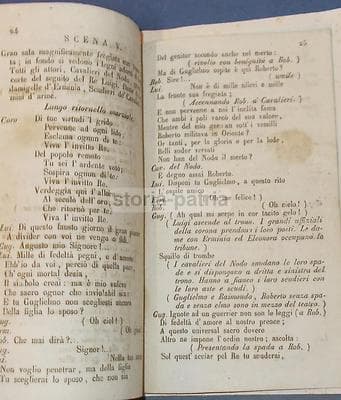 24
SCENA V.
Gran sala magnificamente fregiata
ti; in fondo si vedono i
Tutti gli attori, Cavalieri del Nodo,
del seguito del Re Luigi,
damigelle d'Erminia, Scudieri de'
d'arme.
Lungo ritornello marziale.
Coro Di tue virtudi i' grido
Pervenne ad ogni lido;
Esclama ognun di te:
Viva l'invitto Re.
Del popolo remoto
Tu sei l'ardente voto;
Sospira ognun di te:
Viva l'invitto Re.
Verdeggia qui l'alloro
Al secolo dell'oro,
Che ritornò per te.
Viva l'invitto Re.
Lui. Di questo fausto giorno il gran piacere
A divider con voi ne vengo a
Gug. Augusto mio Signore!
Lui. Mille di fedeltà pegni, e d'amore
Ch'io da voi, perciò di quella
Ch'ogni mortal desia,
Il simbolo creai: ma è mio volere
Che sacro ognor che inviolabil sia
E tu Guglielmo non sceglesti ancora
Della figlia lo sposo?
( Oh ciel! )
Rob. Che mai dirà?..
Signor!..
Nella tua
Non voglio penetrar, ma della figlia
Tu sceglierai lo sposo, che non sia
25
Del genitor secondo anche nel merto:
( rivolto con benignità a Rob. )
Ma di Guglielmo ospite è qui Roberto?
Rob. Sire!.. ( umile )
Lui. Non è di mille allori e mille
La fronte sua fregiata;
( Accennando Rob. a Cavalieri. )
E non pervenne a noi l'ingrata
Che ambi i poli varcò del suo valore,
Mentre del mio german sott'i vessilli
Roberto militava in Oriente?
Or tanti, per la gloria e per la lode,
Belli sudor versati
Non han del Nodo il merto?
Coro
E degno assai Roberto.
Lui. Disponi tu Guglielmo, a questo rito
L'ospite amico
che felice! )
Rob. ( Oh cielo! )
Gug. ( Ah quai mi serpe in cor tacito gelo! )
( Luigi ascende al trono. I grandi uffiziali
della corona prendono i loro posti. Le da-
me con Erminia ed Eleonora occupano la
tribune. )
Squillo di trombe
( I cavalieri del Nodo snudano le loro spa-
de e si dispongono a dritta e sinistra del
trono. Hanno a fianco i loro scudieri con
le loro aste e scudi.
( Guglielmo e Raimondo, Roberto senza spa-
da e senza elmo sono in mezzo del teatro.
Gug. Ignote ad un guerrier non son le leggi (a Rob.
Di fedeltà d'amore al nostro prence;
A questo universal sacro dovere
Altro ne impone l'ordin nostro; ascolta:
( Presentando la spada a Rob. )
Sol quest'acciar pel Re tu snuderai,
storia-patria